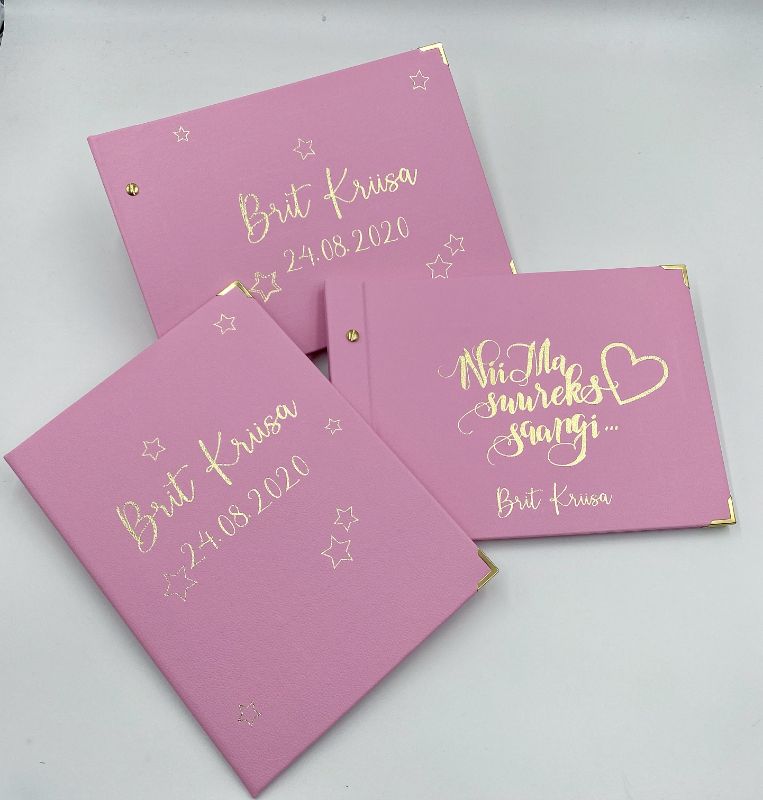 Brit Kriisa
24.08.2020
Nii Ma
suureks
saangi...
Brit Kriisa
Brit Kriisa
24.08.2020